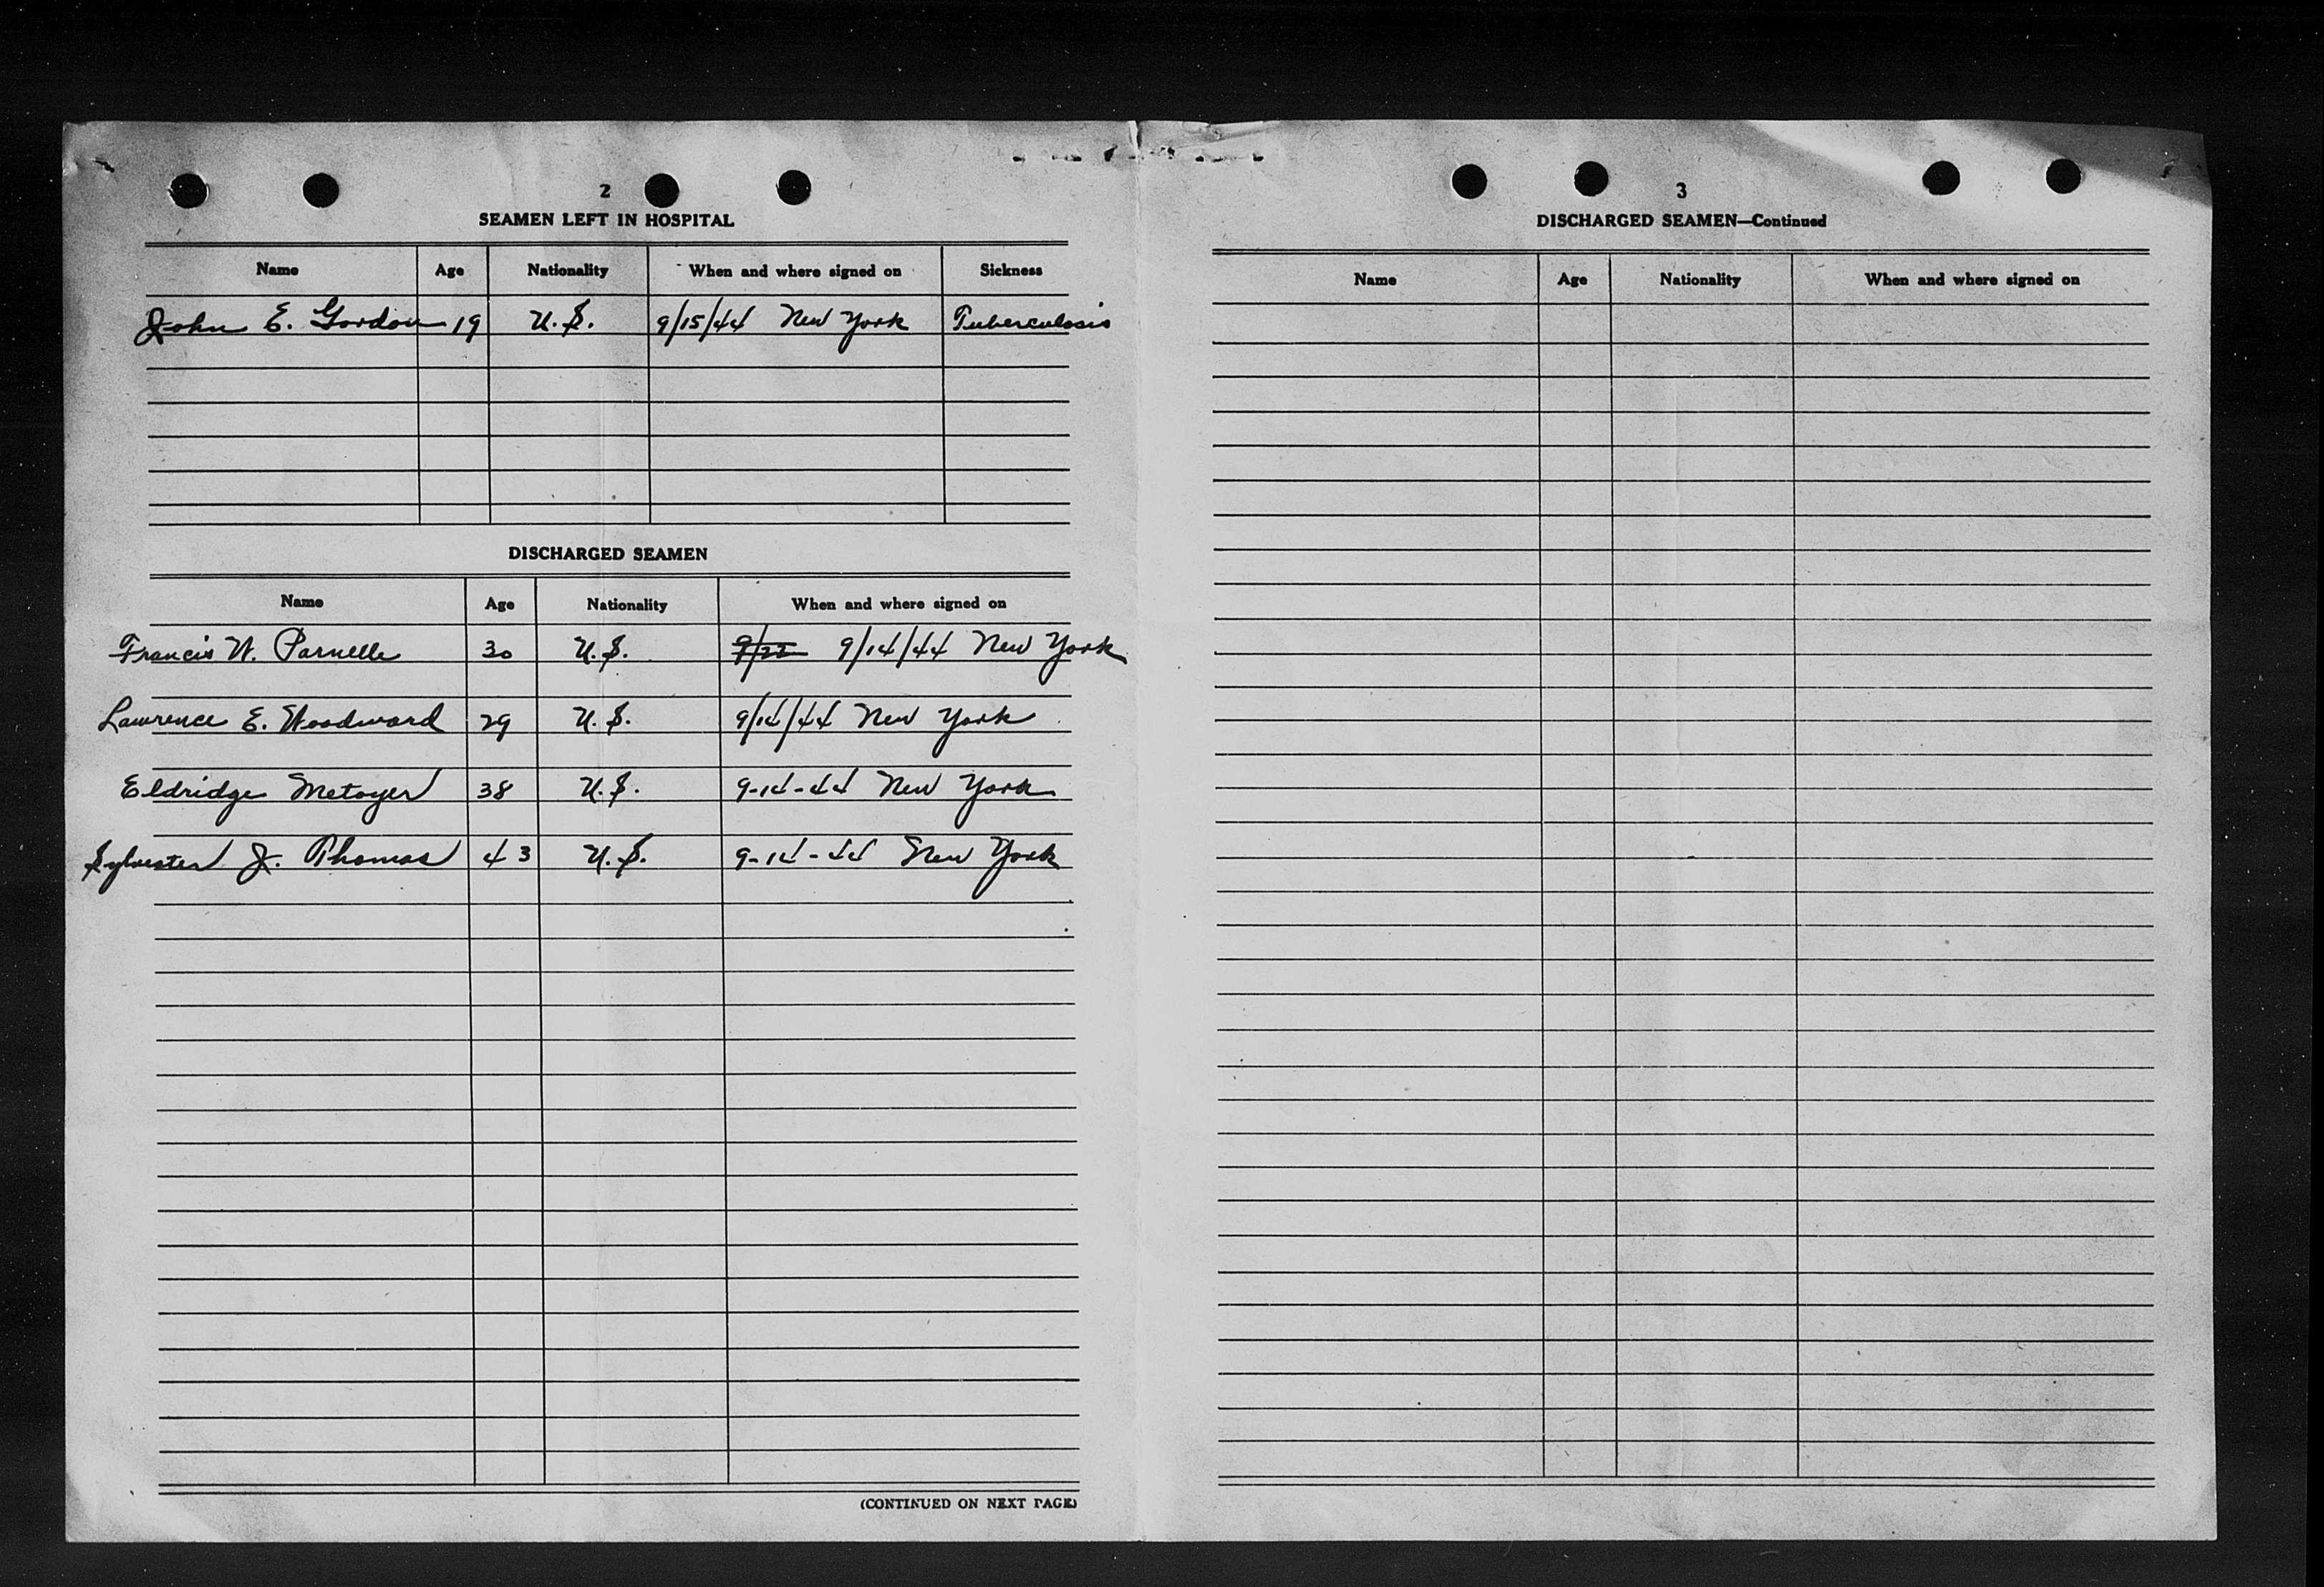 2
SEAMEN LEFT IN HOSPITAL
Name Age Nationality When and where signed on Sickness
John E. Gordon 19 U.S. 9/15/44 New York Tuberculosis
DISCHARGED SEAMEN
Name Age Nationality When and where signed on
Francis W. Parnelle 30 U.S. 9/22 9/14/44 New York
Lawrence E. Woodward 29 U.S. 9/14/44 New York
Eldridge Metoyer 38 U.S. 9-14-44 New York
Sylvester J. Thomas 43 U.S. 9-14-44 New York
(CONTINUED ON NEXT PAGE)
3
DISCHARGED SEAMEN—Continued
Name Age Nationality When and where signed on